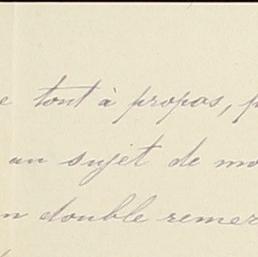 e tout à propos, p
un sujet de mo
n double remer